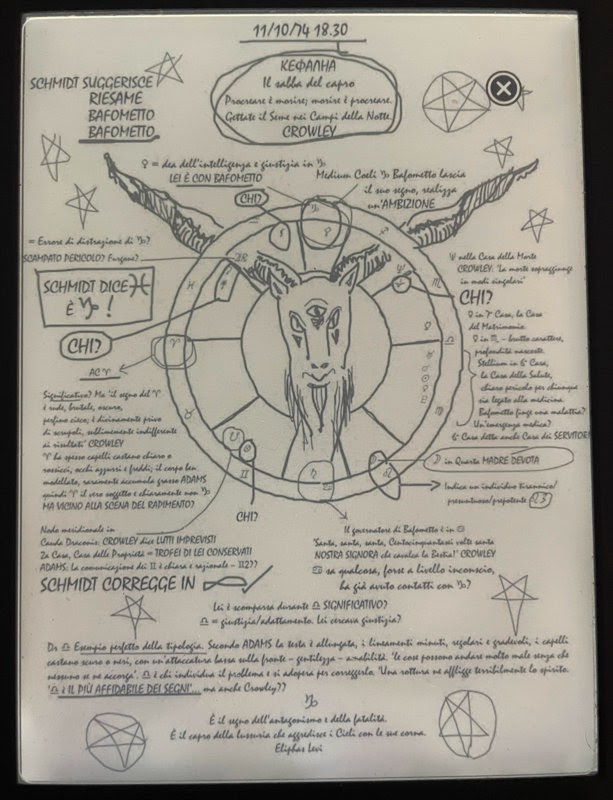 11/10/74 18.30
ΚΕΦΑΛΗΑ
Il sabba del capro
Procreare è morire; morire è procreare.
Gettate il Seme nei Campi della Notte.
CROWLEY
SCHMIDT SUGGERISCE
RIESAME
BAFOMETTO
BAFOMETTO
♀ = dea dell'intelligenza e giustizia in ♑
LEI È CON BAFOMETTO
CHI?
Medium Coeli ♑ Bafometto lascia
il suo segno, realizza
un'AMBIZIONE
= Errore di distrazione di ♑?
SCAMPATO PERICOLO? Furgone?
SCHMIDT DICE ♓
È ♑ !
CHI?
AC ♈
♆ nella Casa della Morte
CROWLEY: 'La morte sopraggiunge
in modi singolari'
CHI?
♀ in 7ª Casa, la Casa
del Matrimonio
♀ in ♏ - brutto carattere,
profondità nascoste.
Stellium in 6ª Casa,
la Casa della Salute,
chiaro pericolo per chiunque
sia legato alla medicina.
Bafometto finge una malattia?
Un'emergenza medica?
6ª Casa detta anche Casa dei SERVITORI
Significativo? Ma 'il segno del ♈
è rude, brutale, oscuro,
perfino cieco; è divinamente privo
di scrupoli, sublimemente indifferente
ai risultati' CROWLEY
♈ ha spesso capelli castano chiaro o
rossicci, occhi azzurri e freddi; il corpo ben
modellato, raramente accumula grasso ADAMS
quindi ♈ il vero soggetto e chiaramente non ♑
MA VICINO ALLA SCENA DEL RAPIMENTO?
☽ in Quarta MADRE DEVOTA
Indica un individuo tirannico/
presuntuoso/prepotente
CHI?
Nodo meridionale in
Cauda Draconis: CROWLEY dice LUTTI IMPREVISTI
2a Casa, Casa delle Proprietà = TROFEI DI LEI CONSERVATI
ADAMS: la comunicazione dei ♊ è chiara e razionale - 112??
SCHMIDT CORREGGE IN
Il governatore di Bafometto è in ♋
'Santa, santa, santa, Centocinquantasei volte santa
NOSTRA SIGNORA che cavalca la Bestia!' CROWLEY
♋ sa qualcosa, forse a livello inconscio,
ha già avuto contatti con ♑?
Lei è scomparsa durante ♎ SIGNIFICATIVO?
♎ = giustizia/adattamento. Lei cercava giustizia?
Dr ♎ Esempio perfetto della tipologia. Secondo ADAMS la testa è allungata, i lineamenti minuti, regolari e gradevoli, i capelli
castano scuro o neri, con un'attaccatura bassa sulla fronte - gentilezza - amabilità. 'le cose possono andare molto male senza che
nessuno se ne accorga'. ♎ è chi individua il problema e si adopera per correggerlo. 'Una rottura ne affligge terribilmente lo spirito.
'♎ È IL PIÙ AFFIDABILE DEI SEGNI'... ma anche Crowley??
♑
È il segno dell'antagonismo e della fatalità.
È il capro della lussuria che aggredisce i Cieli con le sue corna.
Eliphas Levi